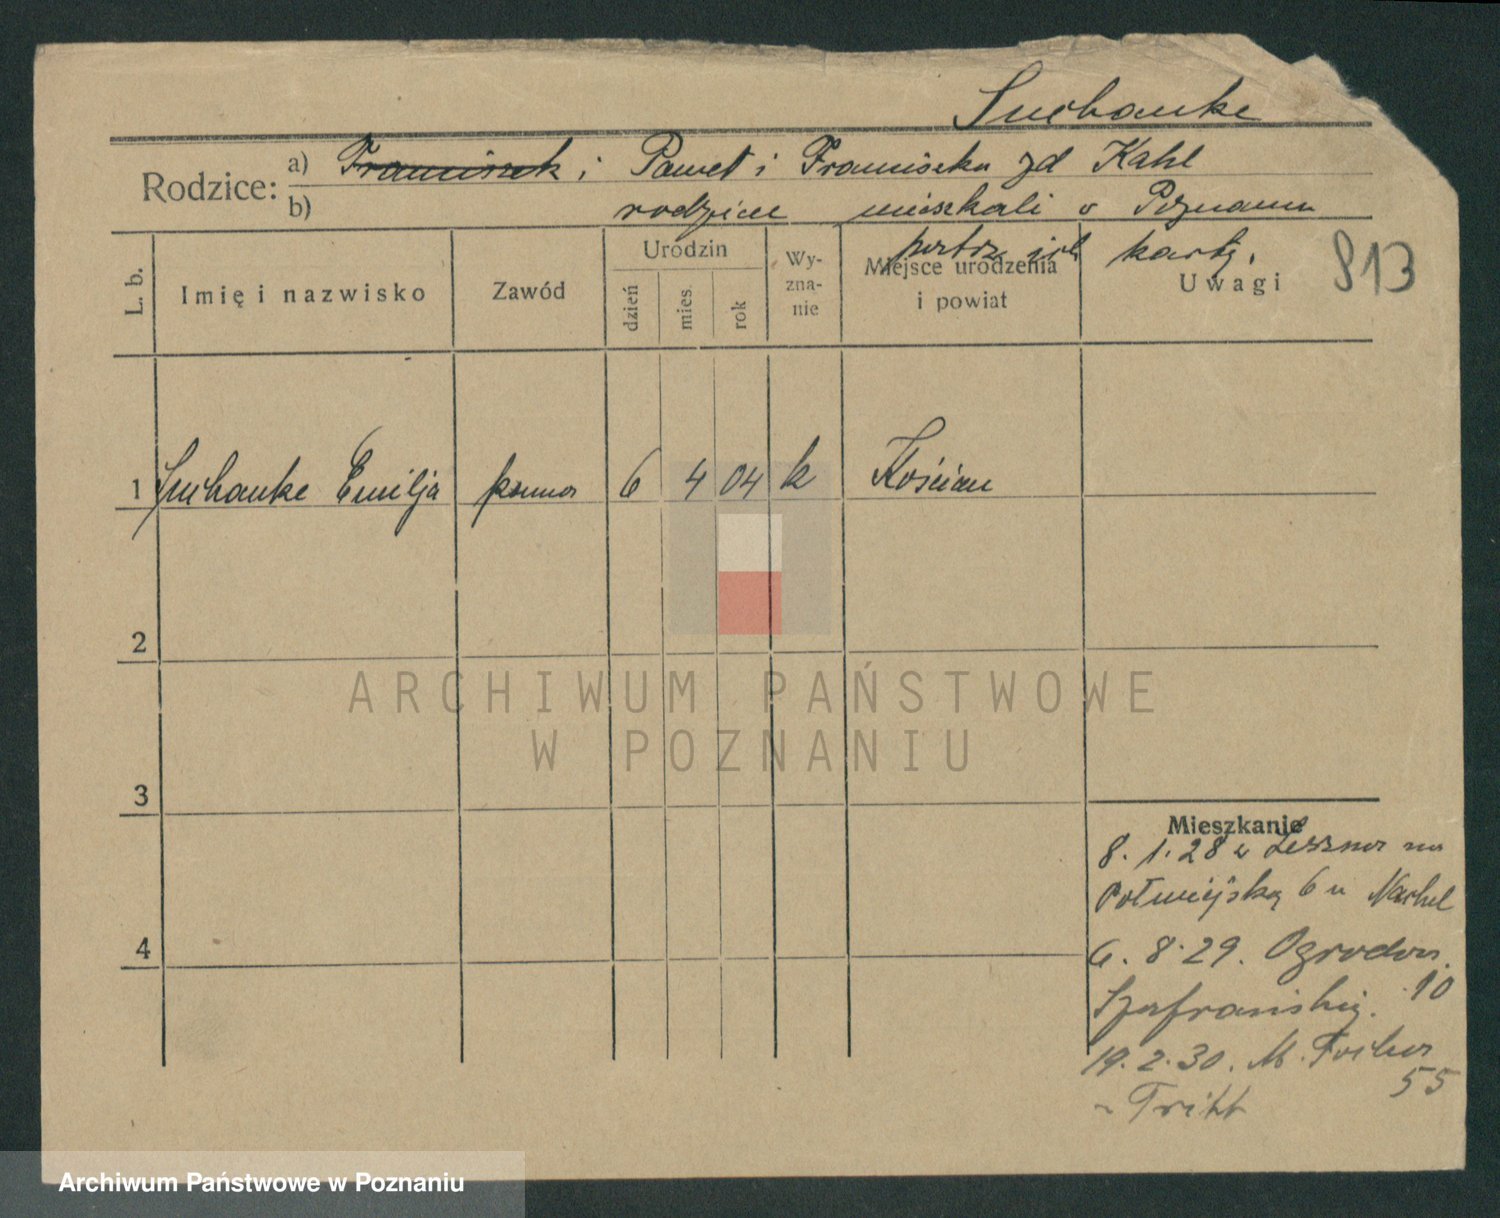 Suchanke
Rodzice: a) Franciszek i Paweł i Franciszka zd Kahl
b) rodzice mieszkali w Poznaniu
patrz ich kartę.
813
L. b.
Imię i nazwisko
Zawód
Urodzin
dzień
mies.
rok
Wy-
zna-
nie
Miejsce urodzenia
i powiat
Uwagi
1 Suchanke Emilja 6 4 04 k Kościan
2
3
4
Mieszkanie
8.1.28 z Leszna na
Półwiejską 6 u
6.8.29. Ogrodowa
10
Szafrańskiej.
19.2.30. M. Focha
55
Tritt
ARCHIWUM PAŃSTWOWE
W POZNANIU
Archiwum Państwowe w Poznaniu